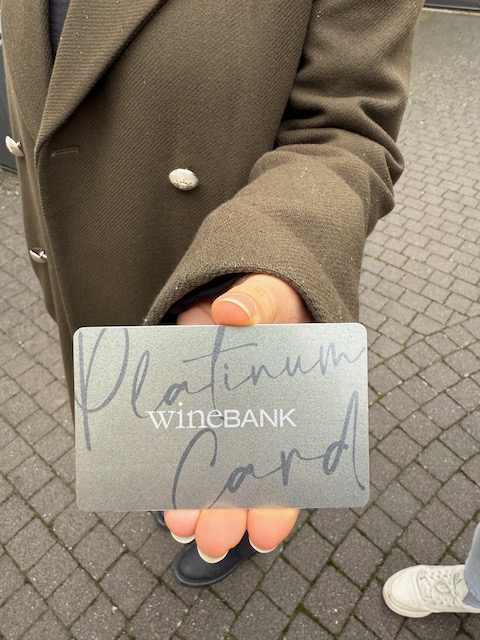 Platinum
wineBANK
Card